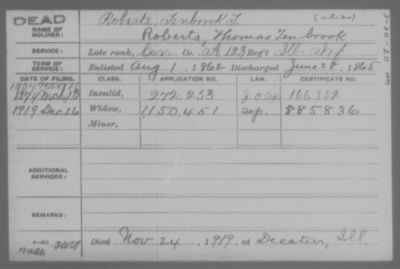 DEAD
NAME OF SOLDIER:
Roberts, Tenbrook T. (alias)
Roberts, Thomas Tenbrook
SERVICE: Late rank, Cor. Co. A, 123 Reg't Ill. Inf.
TERM OF SERVICE: Enlisted Aug 1, 1862 Discharged June 28, 1865
DATE OF FILING. CLASS. APPLICATION NO. LAW. CERTIFICATE NO.
Invalid, 272,253 166852
1919 Dec 26 Widow, 1,150,451 885836
Minor,
ADDITIONAL SERVICES:
REMARKS:
Died Nov 24, 1919, at Decatur, Ill.